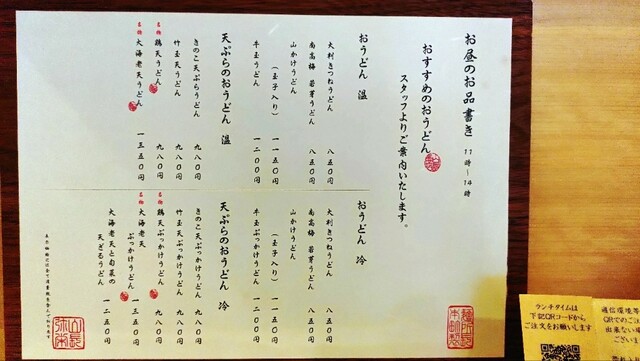 お昼のお品書き 11時～14時
おすすめのおうどん
スタッフよりご案内いたします。
おうどん 温
大判きつねうどん 八五〇円
南高梅 若芽うどん 八五〇円
山かけうどん
(玉子入り) 一一五〇円
牛玉うどん 一二〇〇円
天ぷらのおうどん 温
きのこ天ぷらうどん 九八〇円
竹玉天うどん 九八〇円
名物 鶏天うどん 九八〇円
名物 大海老天うどん 一三五〇円
おうどん 冷
大判きつねうどん 八五〇円
南高梅 若芽うどん 八五〇円
山かけうどん
(玉子入り) 一一五〇円
牛玉ぶっかけうどん 一二〇〇円
天ぷらのおうどん 冷
きのこ天ぶっかけうどん 九八〇円
竹玉天ぶっかけうどん 九八〇円
名物 鶏天ぶっかけうどん 九八〇円
名物 大海老天
ぶっかけうどん 一三五〇円
大海老天と旬菜の
天ざるうどん 一二五〇円
ランチタイムは
下記QRコードから
ご注文をお願いします
通信環境等
QRでのご注
出来ない場